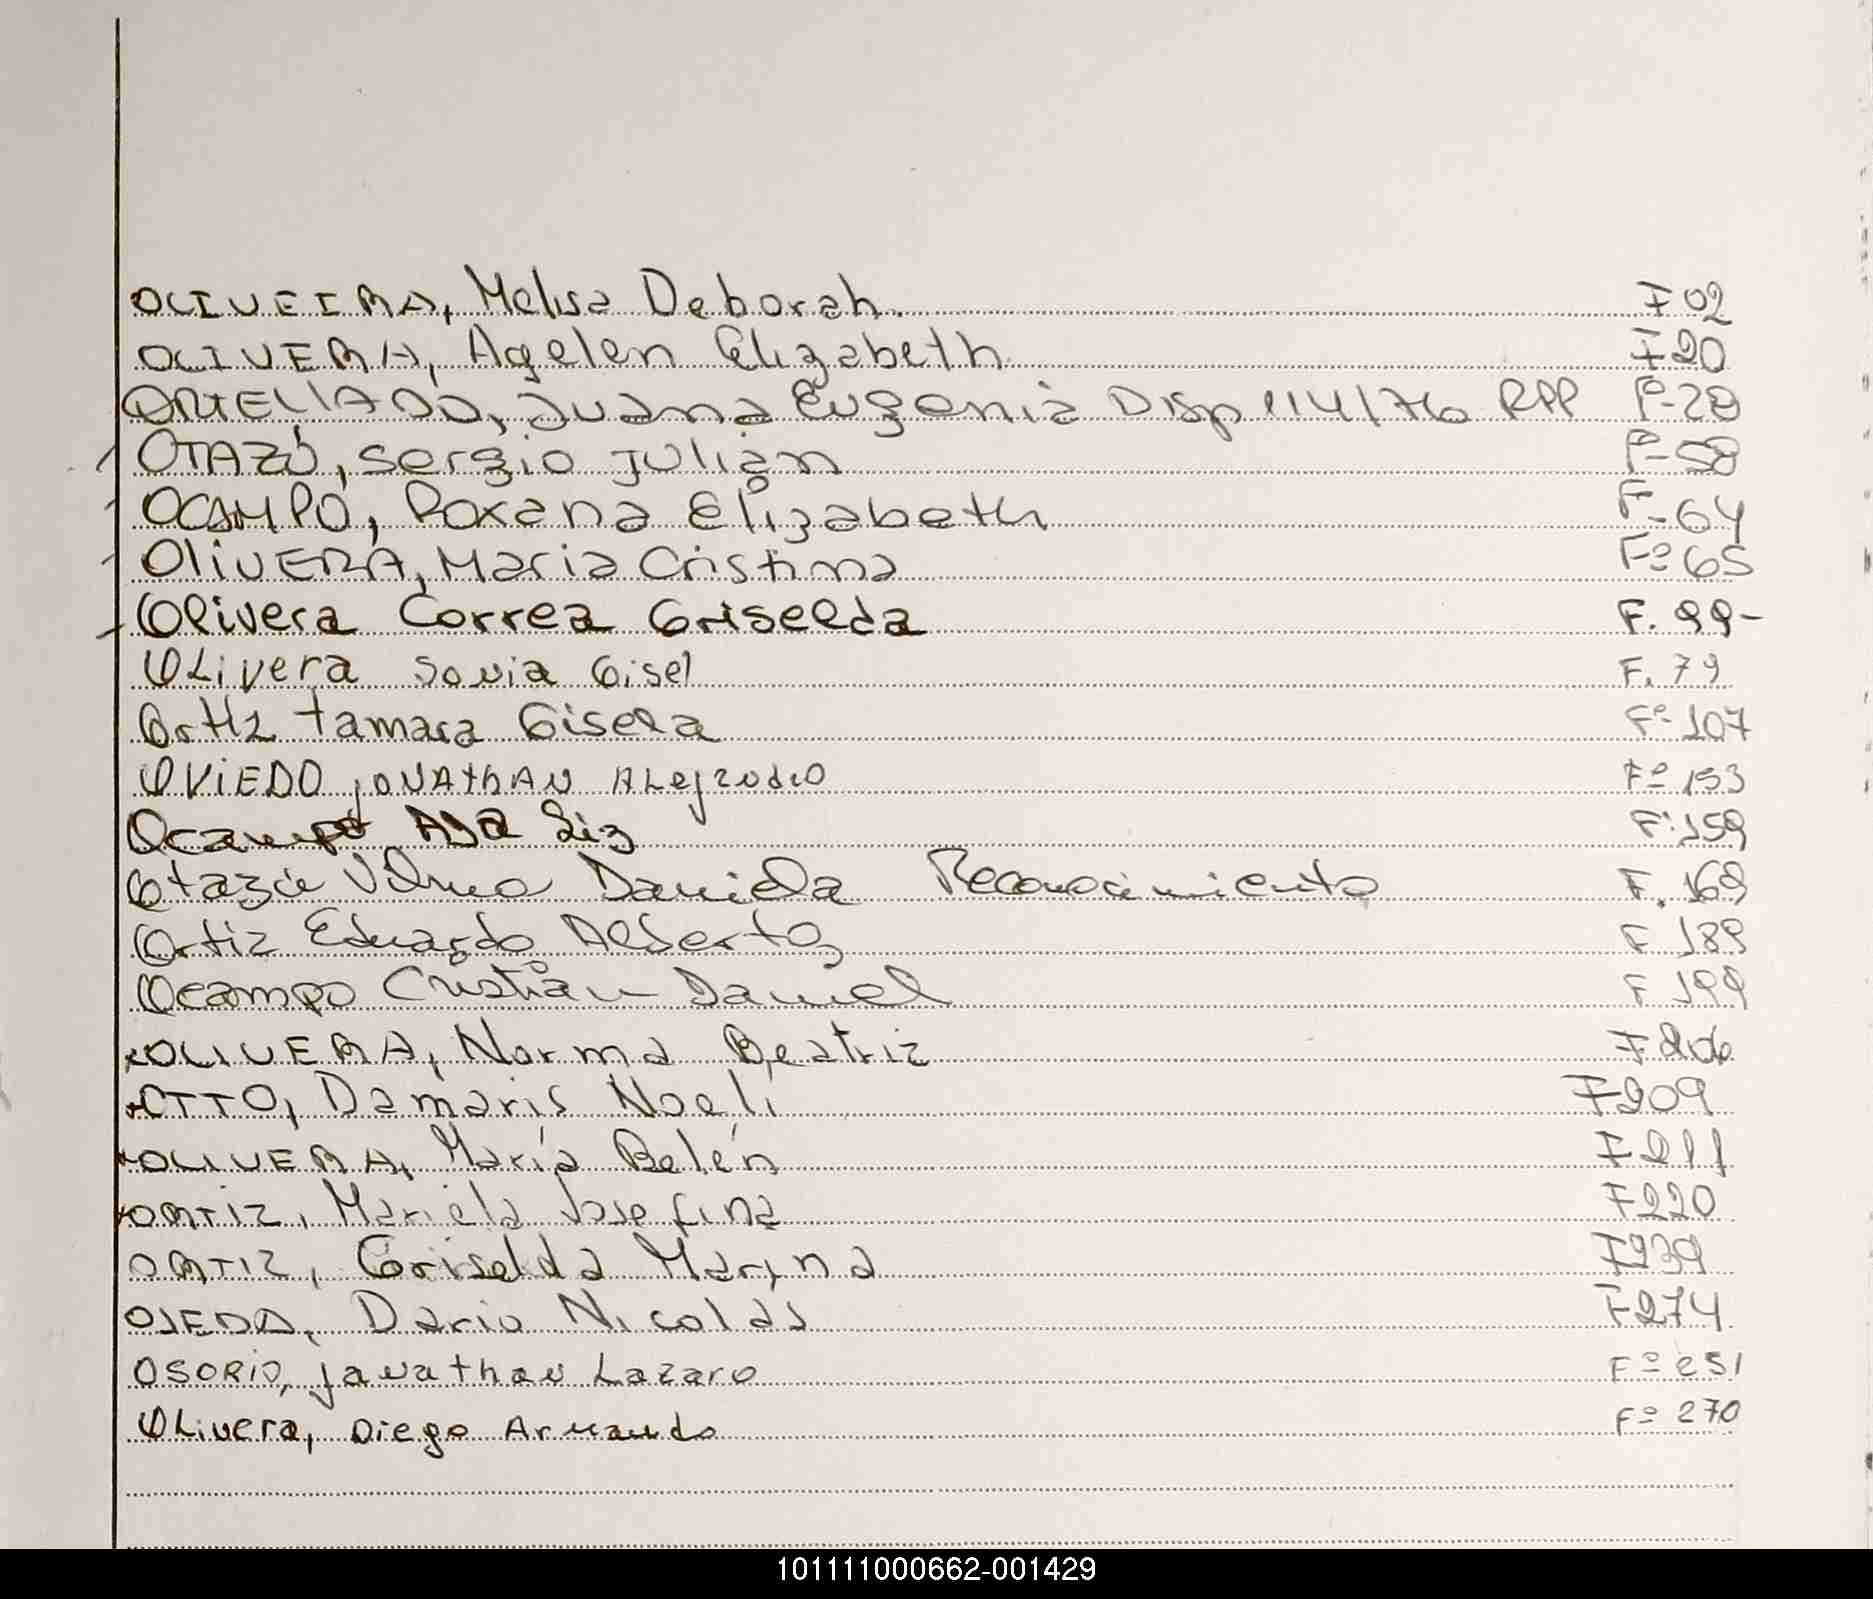 OLIVEIRA, Melisa Deborah. F 02
OLIVERA, Agelen Elizabeth F 20
ORTELLADO, Juana Eugenia Disp 114/76 RPP F-28
OTAZÚ, Sergio Julián F-58
OCAMPO, Roxana Elizabeth F-64
OLIVERA, Maria Cristina Fº 65
Olivera Correa Griselda F. 99-
OLivera Sonia Gisel F. 79
Ortiz tamara Gisela Fº 107
OVIEDO JONAthAN ALejandro Fº 153
Ocampo Liz F. 159
Otazú Vilma Daniela Reconocimiento F. 169
Ortiz Eduardo Alberto F 189
Ocampo Cristian Daniel F 199
OLIVERA, Norma Beatriz F 206
OTTO, Damaris Noeli F 209
OLIVERA, María Belén F 211
ORTIZ, Mariela Josefina F 220
ORTIZ, Griselda Marina F 239
OJEDA, Dario Nicolás F 274
OSORIO, Jonathan Lazaro Fº 251
OLivera, Diego Armando Fº 270
101111000662-001429